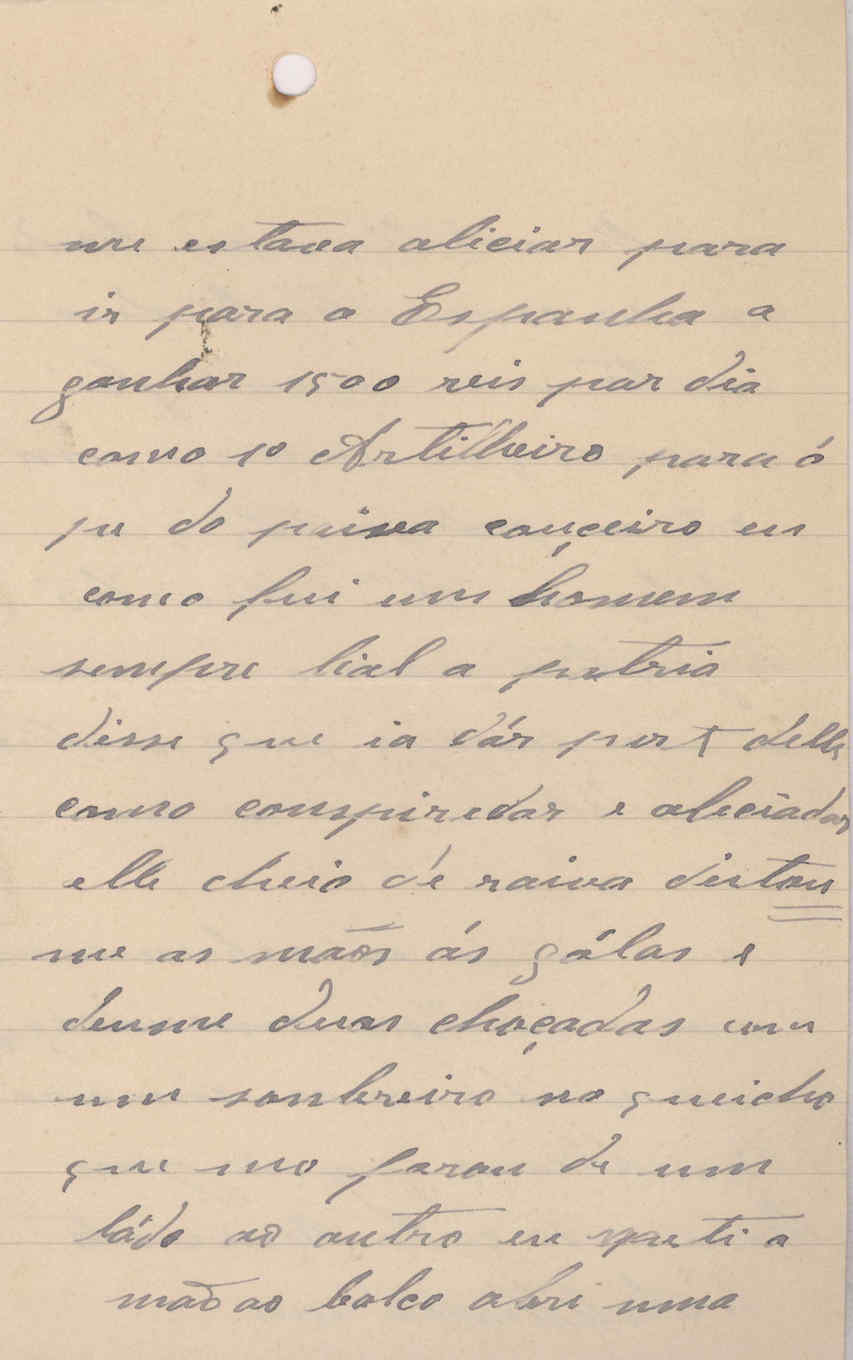 me estava aliciar para
ir para a Espanha a
ganhar 1500 reis par dia
como 1º Artilheiro para ó
pe do paiva conçeiro eu
como fui um homem
sempre lial a patria
disse que ia dár part delle
como conspiredar e aleciadar
elle cheio dé raiva deitou
me as mãos ás gólas e
deume duas choçadas com
um sonbreiro no queicho
que mo farou de um
ládo ao outro eu meti a
mão ao bolco abri uma